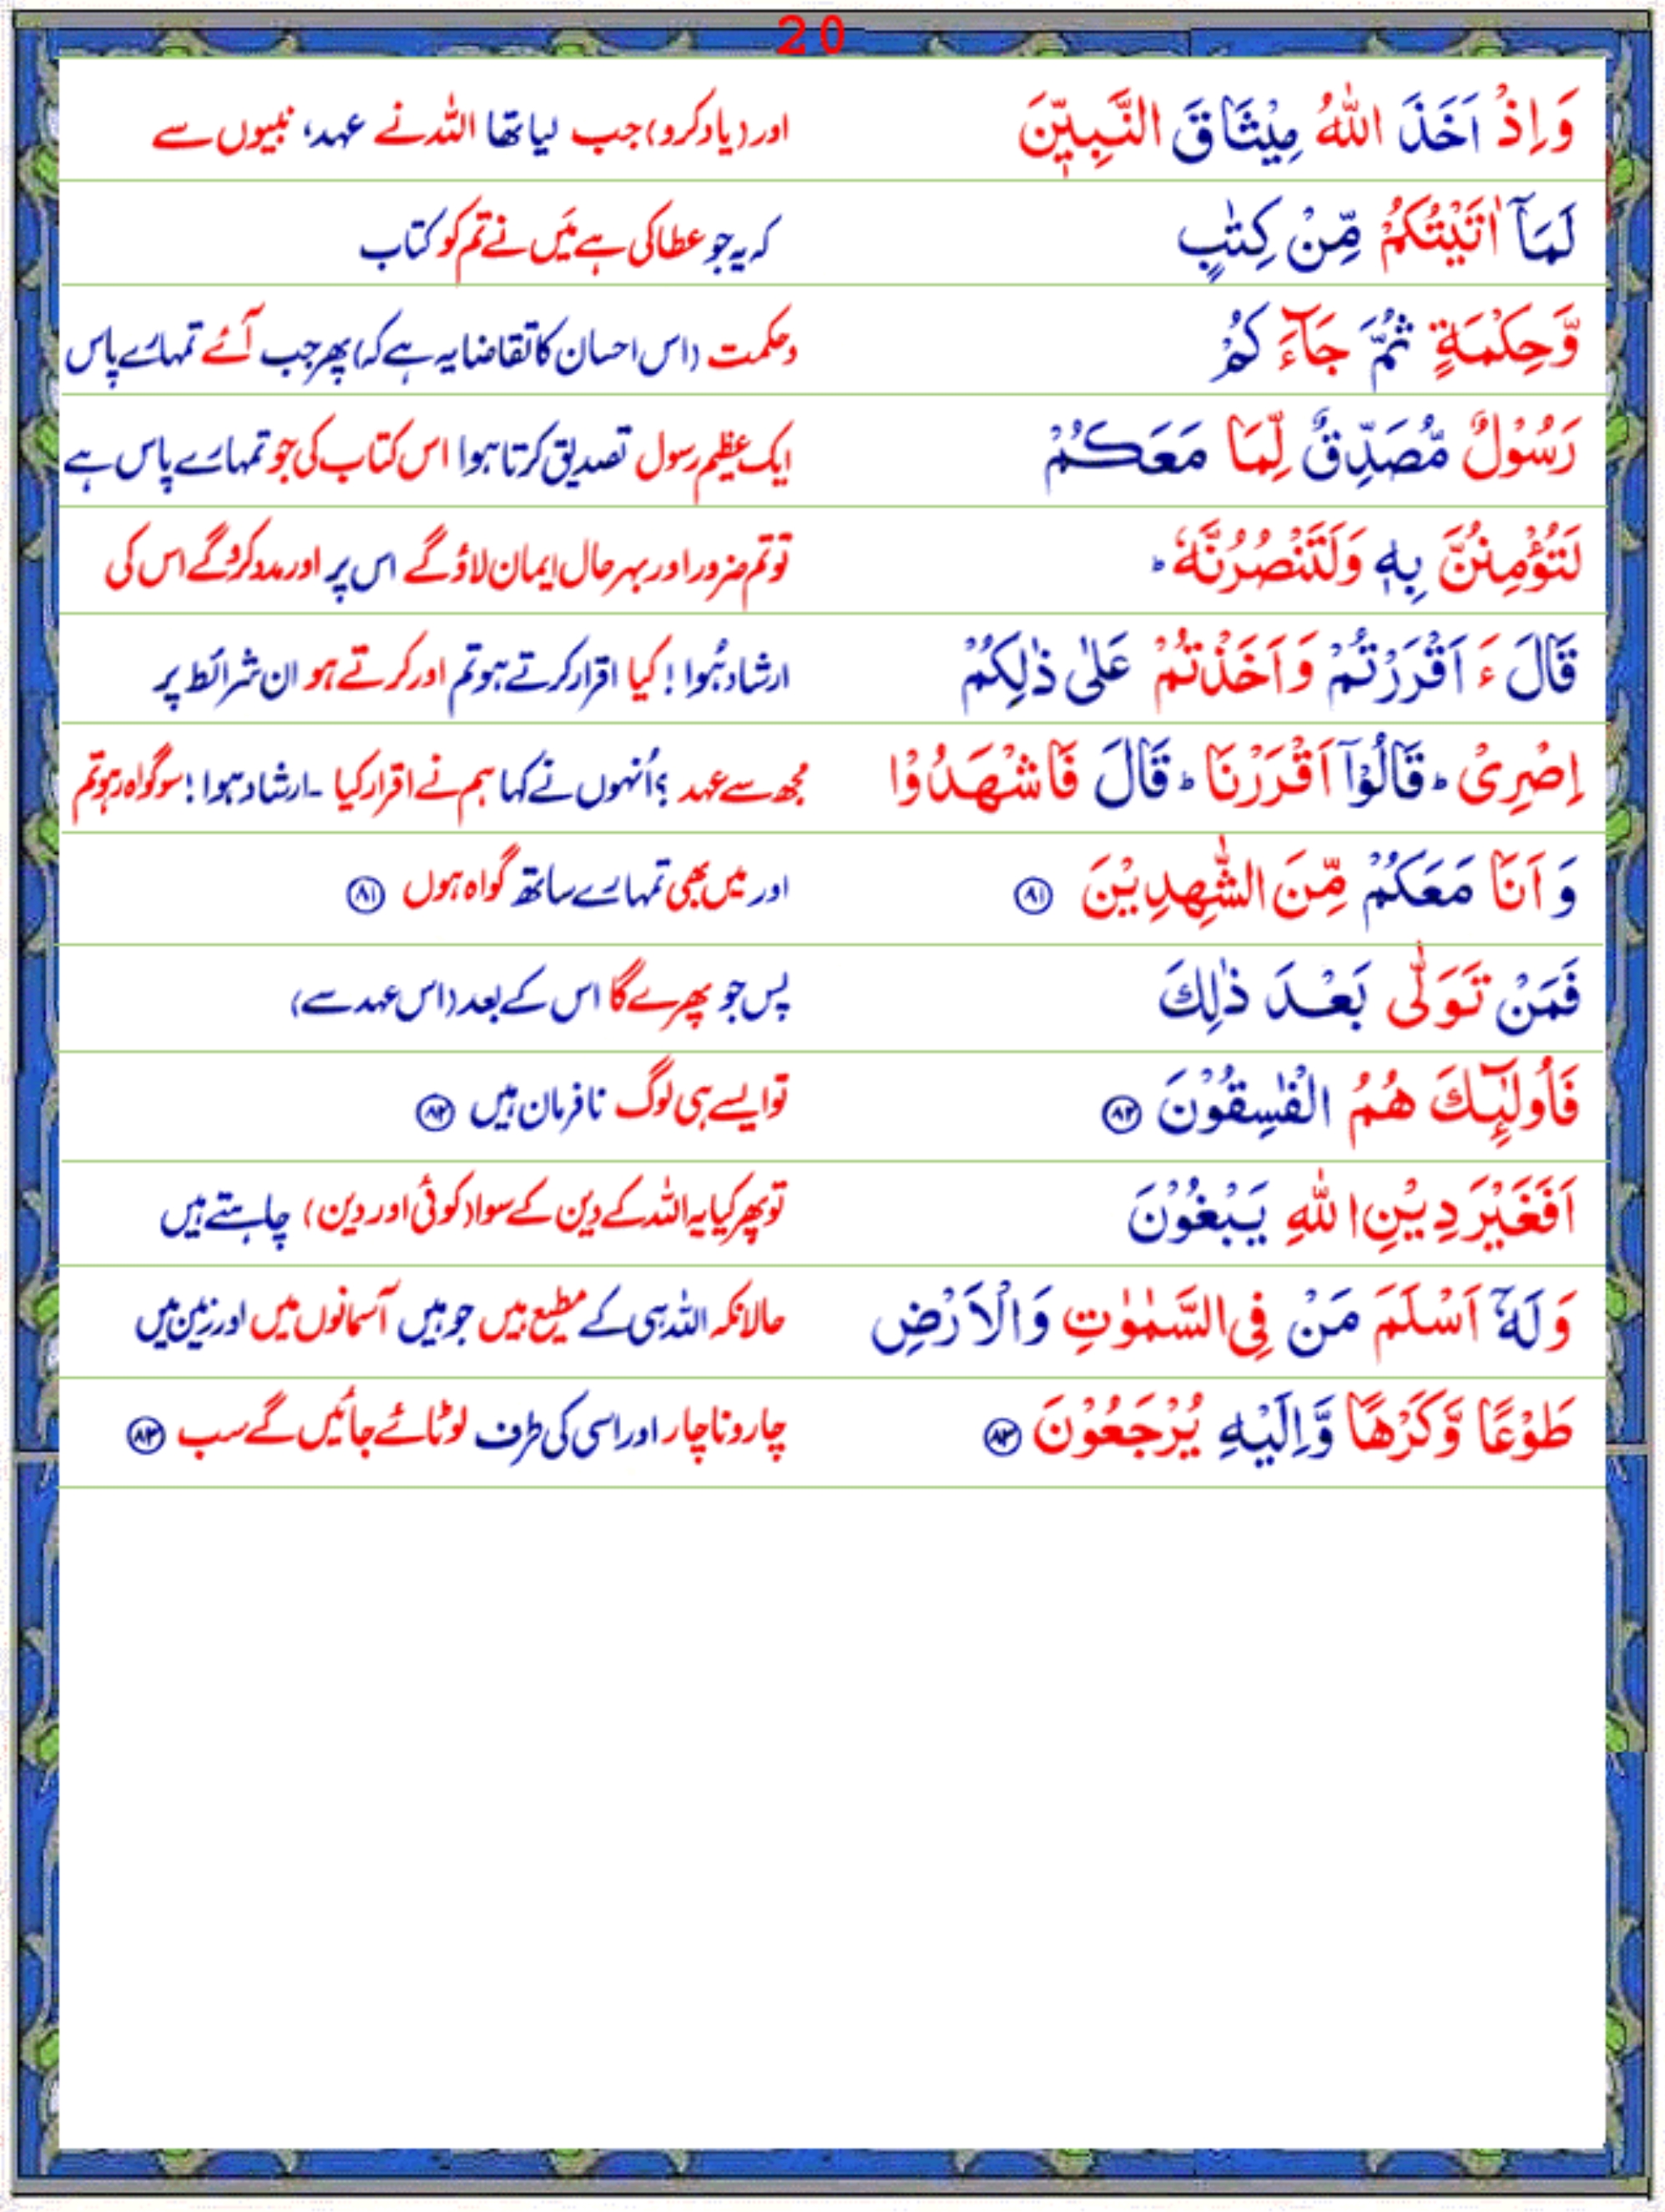 20
وَاِذْ اَخَذَ اللّٰهُ مِيْثَاقَ النَّبِيّٖنَ اور (یاد کرو) جب لیا تھا اللہ نے عہد، نبیوں سے
لَمَاۤ اٰتَيْتُكُمْ مِّنْ كِتٰبٍ کہ یہ جو عطا کی ہے میَں نے تم کو کتاب
وَّحِكْمَةٍ ثُمَّ جَآءَ كُمْ وحکمت (اس احسان کا تقاضا یہ ہے کہ) پھر جب آئے تمہارے پاس
رَسُوْلٌ مُّصَدِّقٌ لِّمَا مَعَكُمْ ایک عظیم رسول تصدیق کرتا ہوا اس کتاب کی جو تمہارے پاس ہے
لَتُؤْمِنُنَّ بِهٖ وَلَتَنْصُرُنَّهٗ ؕ تو تم ضرور اور بہر حال ایمان لاؤ گے اس پر اور مدد کرو گے اس کی
قَالَ ءَ اَقْرَرْتُمْ وَاَخَذْتُمْ عَلٰى ذٰلِكُمْ ارشاد ہُوا ! کیا اقرار کرتے ہو تم اور کرتے ہو ان شرائط پر
اِصْرِىْ ؕ قَالُوْۤا اَقْرَرْنَا ؕ قَالَ فَاشْهَدُوْا مجُھ سے عہد ؟ اُنہوں نے کہا ہم نے اقرار کیا ۔ ارشاد ہوا ! سو گواہ رہو تم
وَ اَنَا مَعَكُمْ مِّنَ الشّٰهِدِيْنَ ۸۱ اور میں بھی تمہارے ساتھ گواہ ہوں ۸۱
فَمَنْ تَوَلّٰى بَعْدَ ذٰلِكَ پس جو پھرے گا اس کے بعد (اس عہد سے)
فَاُولٰٓئِكَ هُمُ الْفٰسِقُوْنَ ۸۲ تو ایسے ہی لوگ نافرمان ہیں ۸۲
اَفَغَيْرَ دِيْنِ اللّٰهِ يَبْغُوْنَ تو پھر کیا یہ اللہ کے دین کے سوا (کوئی اور دین) چاہتے ہیں
وَ لَهٗۤ اَسْلَمَ مَنْ فِى السَّمٰوٰتِ وَالْاَرْضِ حالانکہ اللہ ہی کے مطیع ہیں جو ہیں آسمانوں میں اور زمین میں
طَوْعًا وَّكَرْهًا وَّاِلَيْهِ يُرْجَعُوْنَ ۸۳ چار و ناچار اور اسی کی طرف لوٹائے جائیں گے سب ۸۳